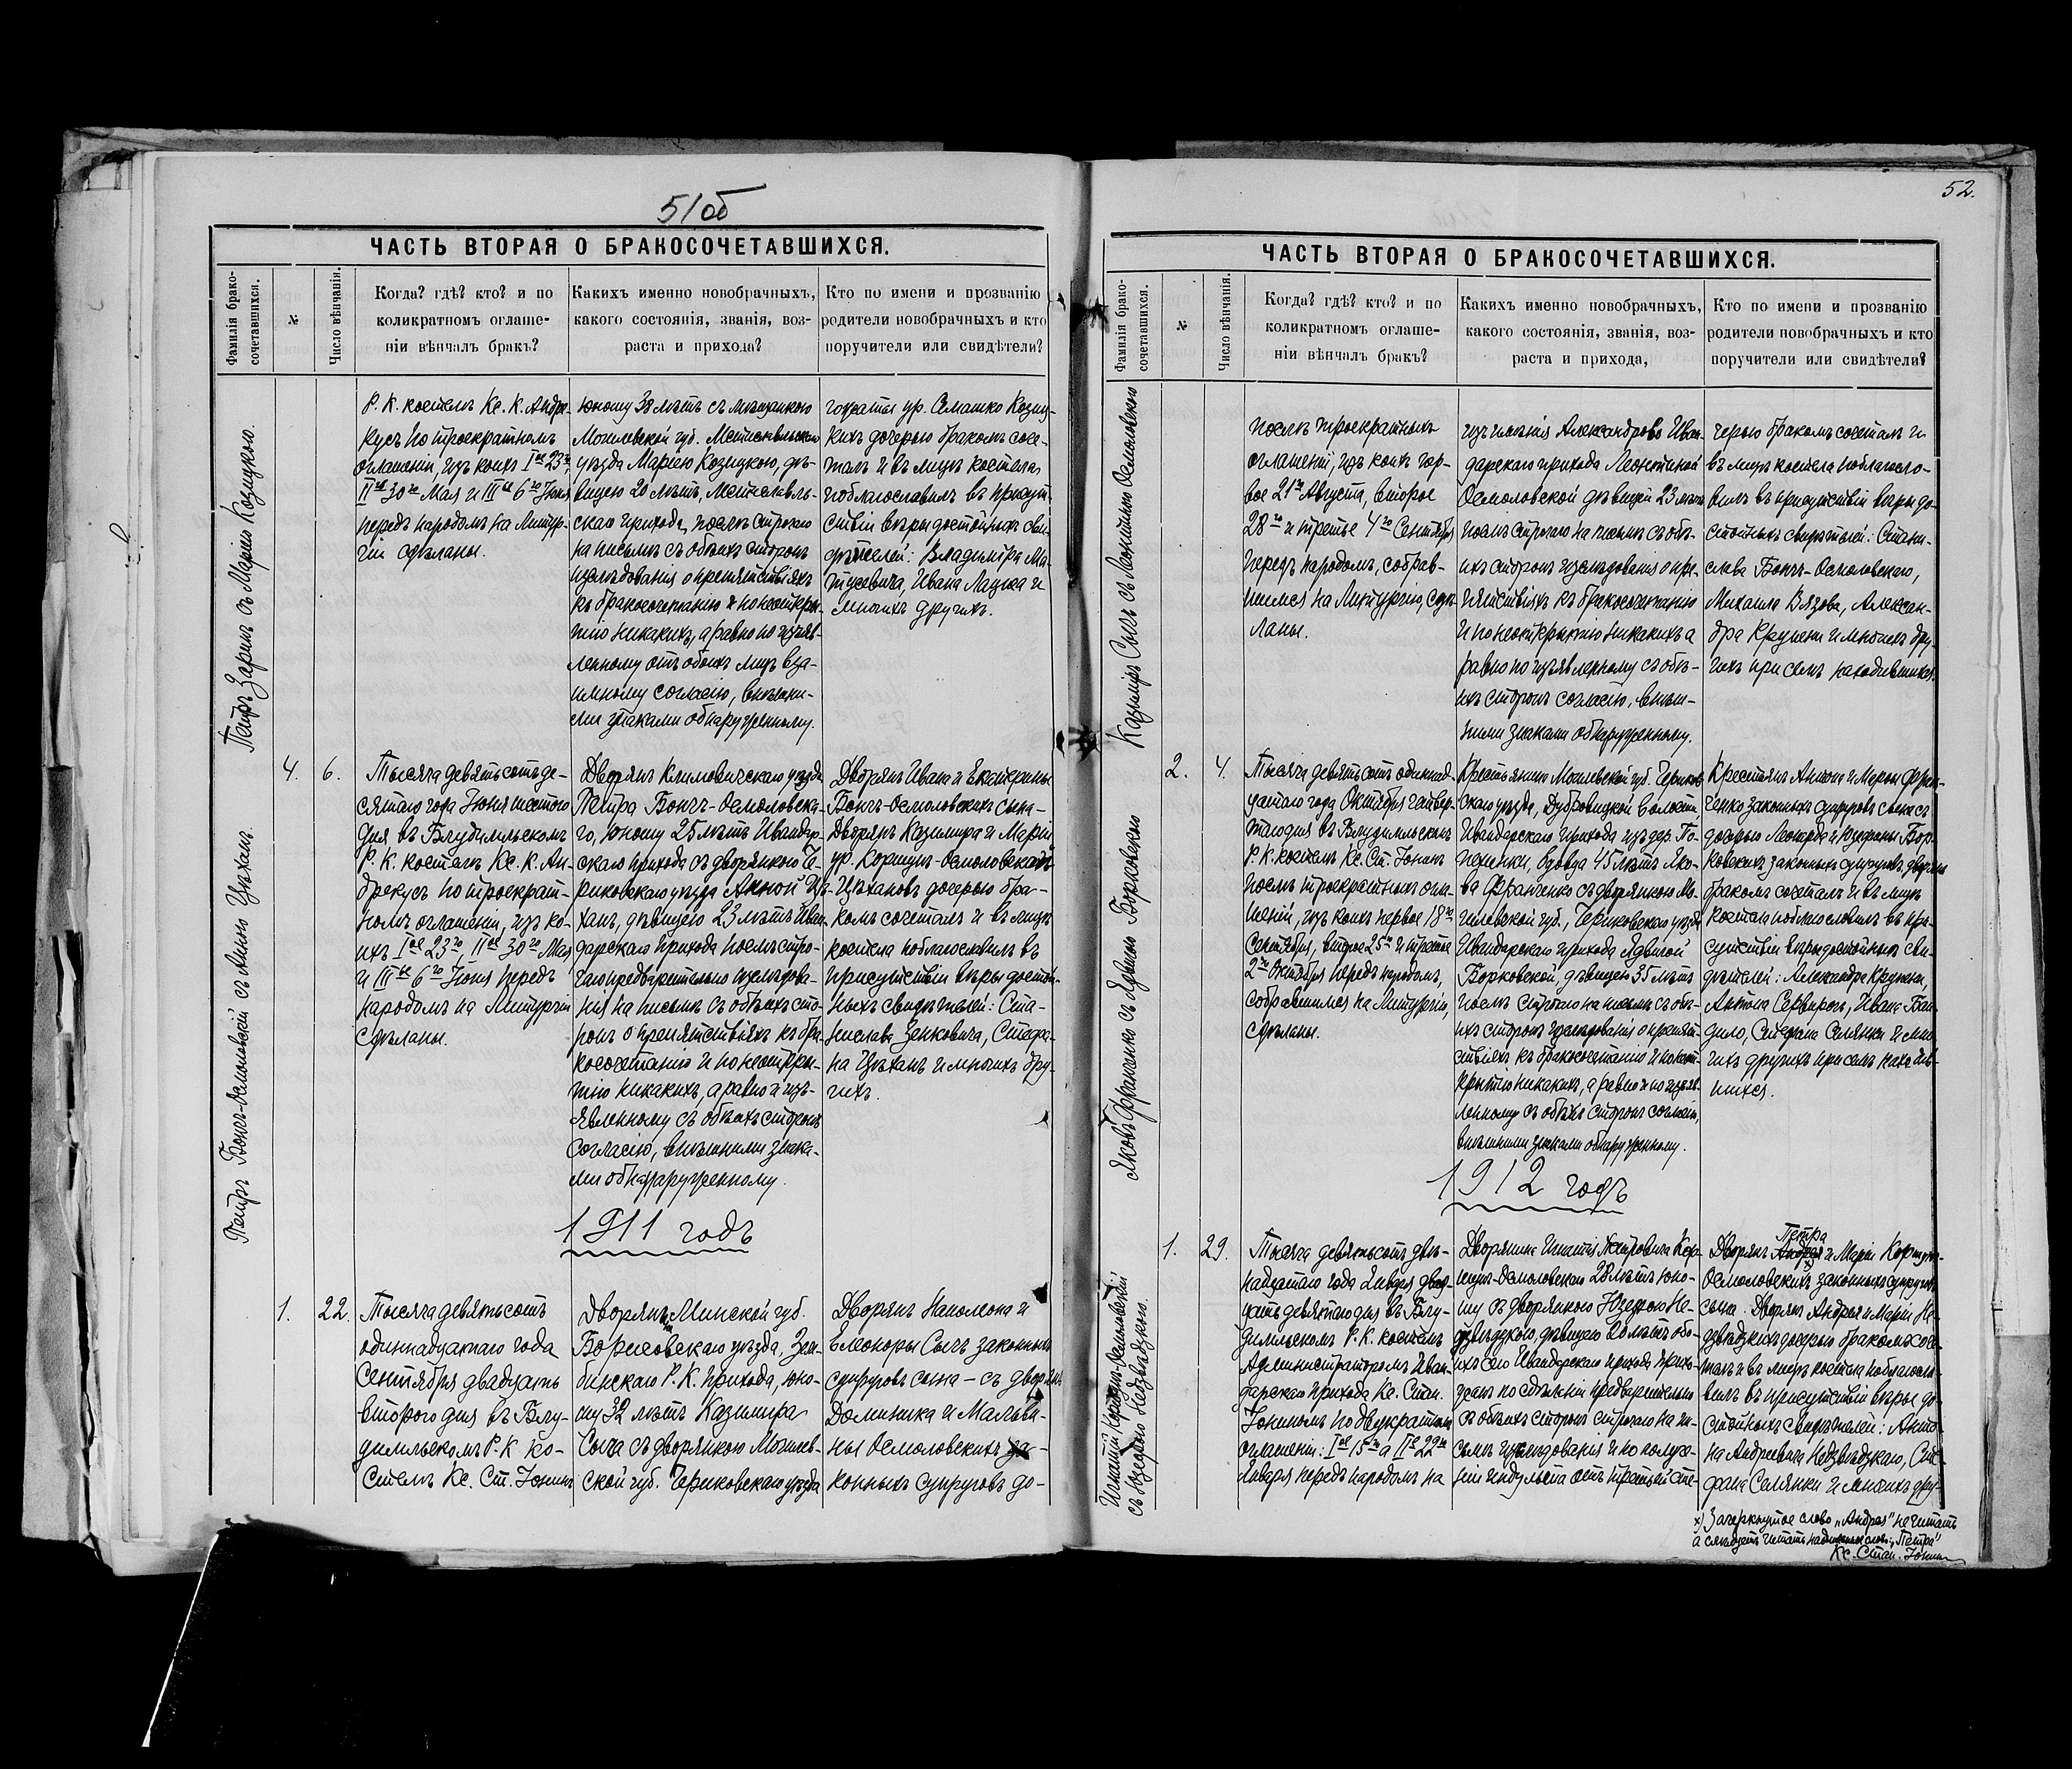 51об
ЧАСТЬ ВТОРАЯ О БРАКОСОЧЕТАВШИХСЯ.
Фамилія брако-
сочетавшихся.
№
Число вѣнчанія.
Когда? гдѣ? кто? и по
коликратномъ оглаше-
ніи вѣнчалъ бракъ?
Какихъ именно новобрачныхъ,
какого состоянія, званія, воз-
раста и прихода?
Кто по имени и прозванію
родители новобрачныхъ и кто
поручители или свидѣтели?
Петръ Заримъ съ Маріею Козицкою.
Р. К. костелѣ Кс. К. Андре-
кусъ по троекратномъ
оглашеніи, изъ коихъ Iое 23го,
IIое 30го Мая и IIIье 6го Іюня
передъ народомъ на Литур-
гіи сдѣланы.
юношу 38 лѣтъ съ мѣщанкою
Могилевской губ. Мстиславльскаго
уѣзда Маріею Козицкою, дѣ-
вицею 20 лѣтъ, Мстиславль-
скаго прихода, послѣ строгаго
на письмѣ съ обѣихъ сторонъ
изслѣдованія о препятствіяхъ
къ бракосочетанію и по неоткры-
тію никакихъ, а равно по изъяв-
ленному отъ обоихъ лицъ вза-
имному согласію, внѣшни-
ми знаками обнаруженному.
ур. Семашко Козиц-
кихъ дочерью бракомъ соче-
талъ и въ лицѣ костела
поблагословилъ въ присут-
ствіи вѣры достойныхъ сви-
дѣтелей: Владиміра Ма-
тусевича, Ивана Лацка и
многихъ другихъ.
Петръ Бонч-Осмоловскій съ Анною Цѣханъ.
4.
6.
Тысяча девятьсотъ де-
сятаго года Іюня шестого
дня въ Блудимльскомъ
Р. К. костелѣ Кс. К. Ан-
дрекусъ по троекрат-
номъ оглашеніи, изъ ко-
ихъ Iое 23го, IIое 30го Мая
и IIIье 6го Іюня передъ
народомъ на Литургіи
сдѣланы.
Дворянъ Климовичскаго уѣзда
Петра Бончъ-Осмоловска-
го, юношу 25 лѣтъ Ивандар-
скаго прихода съ дворянкою Че-
риковскаго уѣзда Анной Цѣ-
ханъ, дѣвицею 23 лѣтъ Иван-
дарскаго прихода послѣ стро-
гаго предварительно изслѣдова-
нія на письмѣ съ обѣихъ сто-
ронъ о препятствіяхъ къ бра-
косочетанію и по неоткры-
тію никакихъ, а равно и изъ-
явленному съ обѣихъ сторонъ
согласію, внѣшними знака-
ми обнаруженному.
Дворянъ Ивана и Екатерины
Бончъ-Осмоловскихъ сына -
Дворянъ Казимира и Маріи
ур. Коршунъ-Осмоловской
Цѣхановъ дочерью бра-
комъ сочеталъ и въ лицѣ
костела поблагословилъ въ
присутствіи вѣры достой-
ныхъ свидѣтелей: Ста-
нислава Зенковича, Стефа-
на Цѣханъ и многихъ дру-
гихъ.
1911 годъ
1.
22.
Тысяча девятьсотъ
одиннадцатаго года
Сентября двадцать
второго дня въ Блу-
димльскомъ Р. К. ко-
стелѣ Кс. Ст. Юнинъ
Дворянъ Минской губ.
Борисовскаго уѣзда, Зем-
бинскаго Р. К. прихода, юно-
шу 32 лѣтъ Казимира
Сыча съ дворянкою Могилев-
ской губ. Чериковскаго уѣзда
Дворянъ Наполеона и
Элеоноры Сычъ законныхъ
супруговъ сына - съ дворянъ
Доминика и Мальви-
ны Осмоловскихъ за-
конныхъ супруговъ до-
52.
ЧАСТЬ ВТОРАЯ О БРАКОСОЧЕТАВШИХСЯ.
Фамилія брако-
сочетавшихся.
№
Число вѣнчанія.
Когда? гдѣ? кто? и по
коликратномъ оглаше-
ніи вѣнчалъ бракъ?
Какихъ именно новобрачныхъ,
какого состоянія, званія, воз-
раста и прихода,
Кто по имени и прозванію
родители новобрачныхъ и кто
поручители или свидѣтели?
Казиміръ Сычъ съ Леонтиною Осмоловскою
послѣ троекратныхъ
оглашеній, изъ коихъ пер-
вое 21го Августа, второе
28го и третье 4го Сентября
передъ народомъ, собрав-
шимся на Литургію, сдѣ-
ланы.
изъ имѣнія Александрово Иван-
дарскаго прихода Леонтиной
Осмоловской дѣвицей 23 лѣтъ
послѣ строгаго на письмѣ съ обѣ-
ихъ сторонъ изслѣдованія о пре-
пятствіяхъ къ бракосочетанію
и по неоткрытію никакихъ а
равно по изъявленному съ обѣ-
ихъ сторонъ согласію, внѣш-
ними знаками обнаруженному.
черью бракомъ сочеталъ и
въ лицѣ костела поблагосло-
вилъ въ присутствіи вѣры до-
стойныхъ свидѣтелей: Стани-
слава Бонч-Осмоловскаго,
Михаила Вязова, Алексан-
дра Крупени и многихъ дру-
гихъ при семъ находившихся.
Яковъ Франченко съ Ядвигою Борковскою
2.
4.
Тысяча девятьсотъ одиннад-
цатаго года Октября четвер-
таго дня въ Блудимльскомъ
Р. К. костелѣ Кс. Ст. Юнинъ
послѣ троекратныхъ огла-
шеній, изъ коихъ первое 18го
Сентября, второе 25го и третье
2го Октября передъ народомъ,
собравшимся на Литургію,
сдѣланы.
Крестьянина Могилевской губ. Чериков-
скаго уѣзда, Дубровицкой волости,
Ивандарскаго прихода изъ дер. По-
печенки, вдовца 45 лѣтъ Яко-
ва Франченко съ дворянкою Мо-
гилевской губ., Чериковскаго уѣзда
Ивандарскаго прихода Ядвигой
Борковской, дѣвицею 35 лѣтъ
послѣ строгаго на письмѣ съ обѣ-
ихъ сторонъ изслѣдованія о препят-
ствіяхъ къ бракосочетанію и по неот-
крытію никакихъ, а равно и по изъяв-
ленному съ обѣихъ сторонъ согласію,
внѣшними знаками обнаруженному.
Крестьянъ Антона и Марьи Фран-
ченко законныхъ супруговъ сына съ
дочерью Леонарда и Юзефины Бор-
ковскихъ законныхъ супруговъ дворянъ
бракомъ сочеталъ и въ лицѣ
костела поблагословилъ въ при-
сутствіи вѣры достойныхъ сви-
дѣтелей: Александра Крупени,
Антона Сервирогъ, Ивана Бан-
дило, Стефана Селянки и мно-
гихъ другихъ при семъ находив-
шихся.
1912 годъ
Игнатій Коршунъ-Осмоловскій
съ Юзефою Недзвѣдзкою.
1.
29.
Тысяча девятьсотъ двѣ-
надцатаго года Января двад-
цать девятаго дня въ Блу-
димльскомъ Р. К. костелѣ
Администраторомъ Иван-
дарскаго прихода Кс. Стан.
Юнинымъ по двукратномъ
оглашеніи: Iое 15го и IIое 22го
Января передъ народомъ на
Дворянина Игнатія Петровича Кор-
шунъ-Осмоловскаго 28 лѣтъ юно-
шу съ дворянкою Юзефою Не-
дзвѣдзкою, дѣвицею 20 лѣтъ обо-
ихъ сего Ивандарскаго прихода прихо-
жанъ по сдѣланіи предварительно
съ обѣихъ сторонъ строгаго на пи-
сьмѣ изслѣдованія и по получе-
ніи индульта отъ третьей сте-
Петра
Дворянъ Андрея х) и Маріи Коршунъ-
Осмоловскихъ законныхъ супруговъ
сына. Дворянъ Андрея и Маріи Не-
дзвѣдзкихъ дочерью бракомъ соче-
талъ и въ лицѣ костела поблагосло-
вилъ въ присутствіи вѣры до-
стойныхъ свидѣтелей: Анто-
на Андреевича Недзвѣдзкаго, Сте-
фана Селянки и многихъ дру-
х) Зачеркнутое слово „Андрея" не читать
а слѣдуетъ читать надписанное слово „Петра"
Кс. Стан. Юнинъ